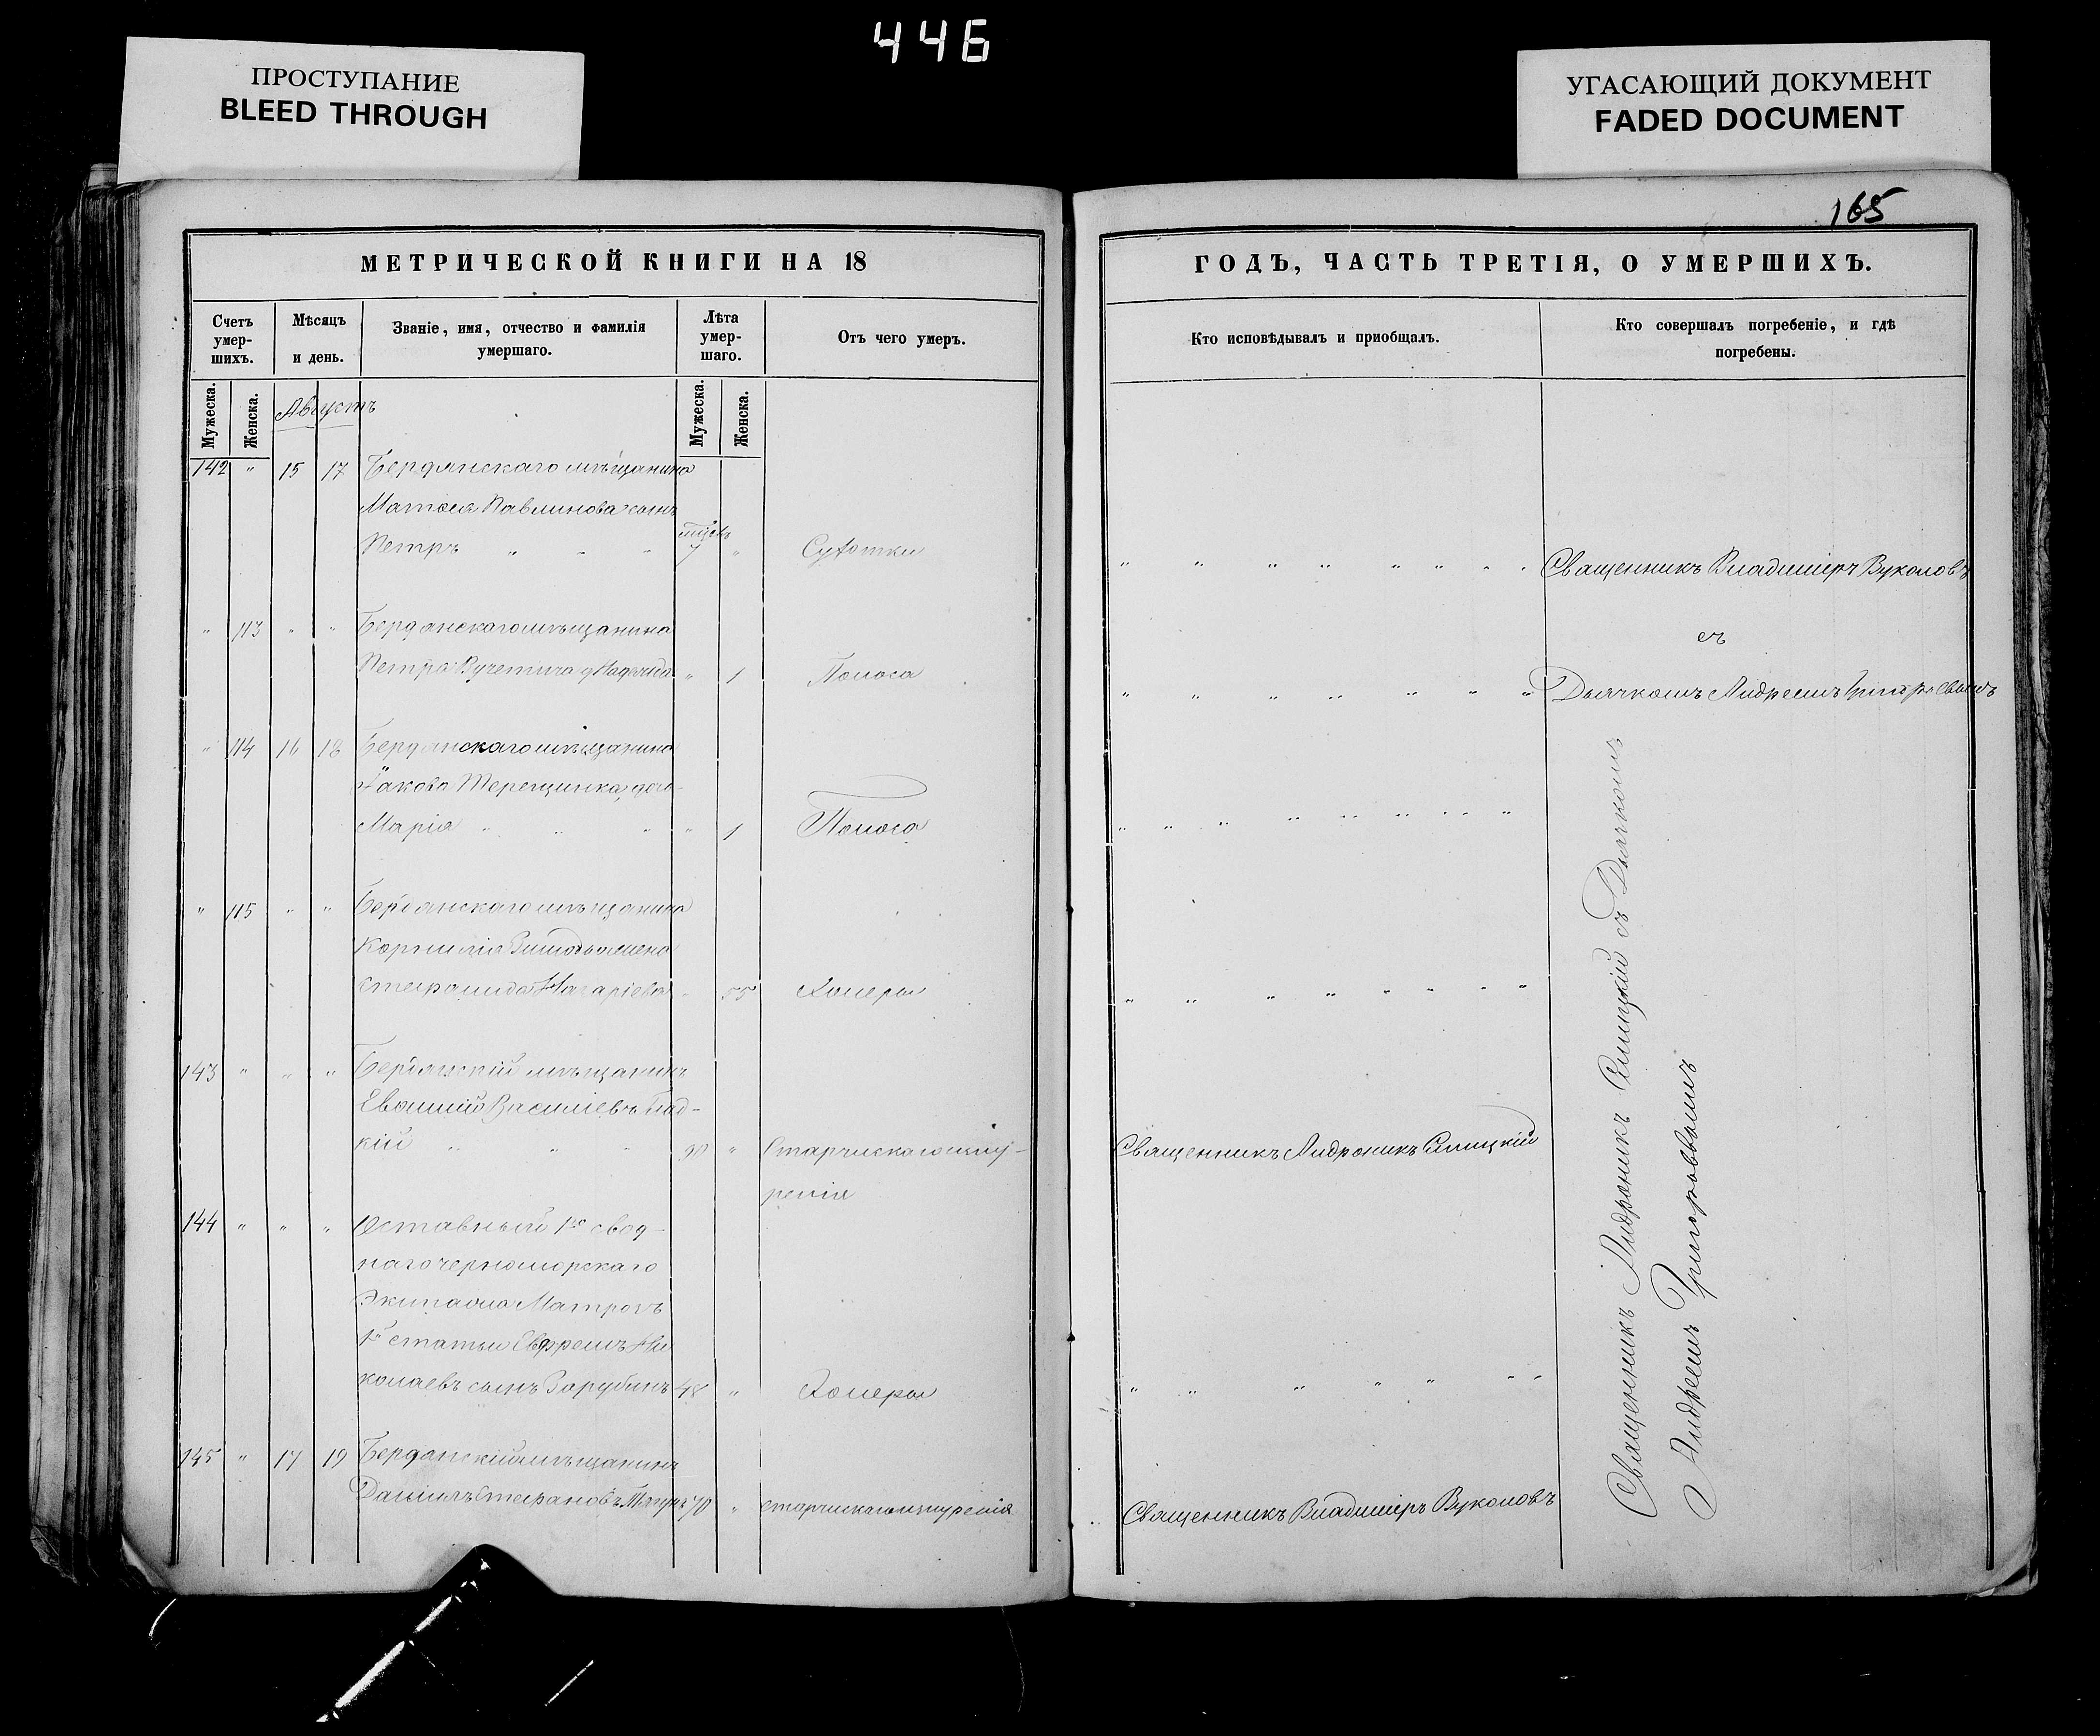 446
ПРОСТУПАНИЕ
BLEED THROUGH
УГАСАЮЩИЙ ДОКУМЕНТ
FADED DOCUMENT
165
МЕТРИЧЕСКОЙ КНИГИ НА 18
Счетъ умер-шихъ.
Мѣсяцъ и день.
Званіе, имя, отчество и фамилія умершаго.
Лѣта умер-шаго.
Отъ чего умеръ.
Мужеска.
Женска.
Мужеска.
Женска.
Августъ
142 " 15 17 Бердянскаго мѣщанина
Матвея Павлинова сынъ
Петръ " " " 7 " Сухотки
" 113 " " Бердянскаго мѣщанина
Петра Вучетича " 1 Поноса
" 114 16 18 Бердянскаго мѣщанина
Іакова Терещинка дочь
Марія " " " " 1 Поноса
" 115 " " Бердянскаго мѣщанина
Корнилія жена
Степанида 55 Холеры
143 " " " Бердянскій мѣщанинъ
Евѳимій Васильевъ Глад-
кій " " " 90 " Старческаго изну-
ренія
144 " " " Отставный 1го свод-
наго черноморскаго
Экипажа Матрозъ
1й статьи Ефремъ Ни
колаевъ сынъ Зарубинъ 48 " Холеры
145 " 17 19 Бердянскій мѣщанинъ
Даніилъ Стефановъ 70 " старческаго изнуренія
ГОДЪ, ЧАСТЬ ТРЕТІЯ, О УМЕРШИХЪ.
Кто исповѣдывалъ и приобщалъ.
Кто совершалъ погребеніе, и гдѣ погребены.
Священникъ Владиміръ Вуколовъ
съ
Дьячкомъ Андреемъ Григоровымъ
Священникъ Андроникъ Климицкій
Священникъ Владиміръ Вуколовъ
Священникъ Андроникъ съ Дьячкомъ
Андреемъ Григоровымъ